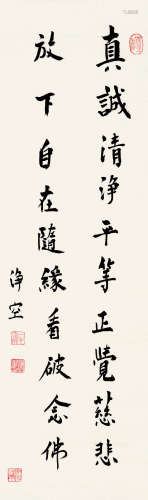 真誠清淨平等正覺慈悲
放下自在隨緣看破念佛
淨空